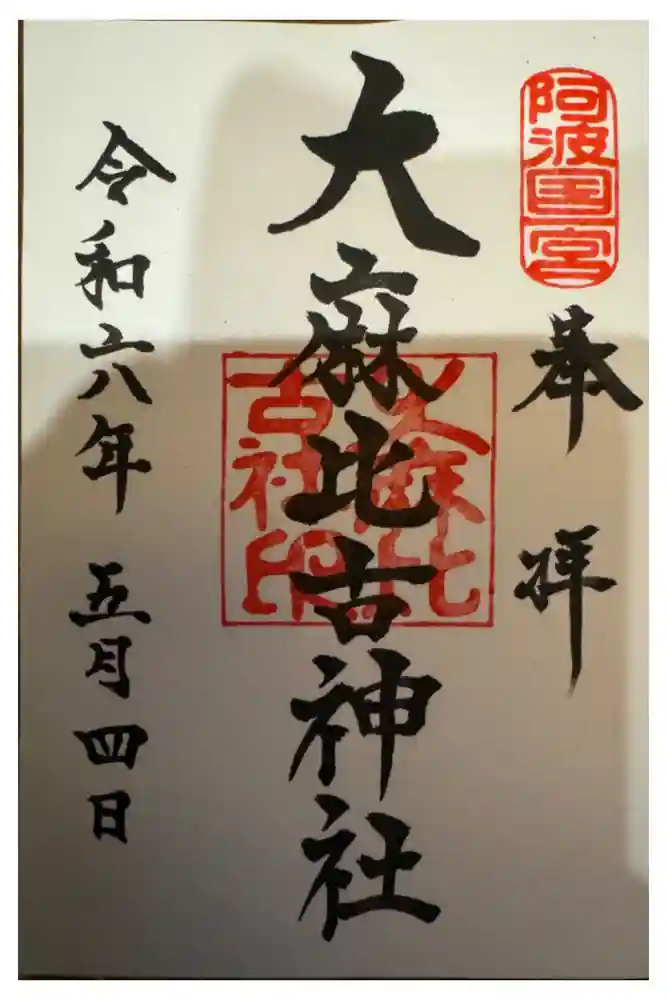 阿波国一宮
奉拝
大麻比古神社
大麻比
古社印
令和六年 五月四日